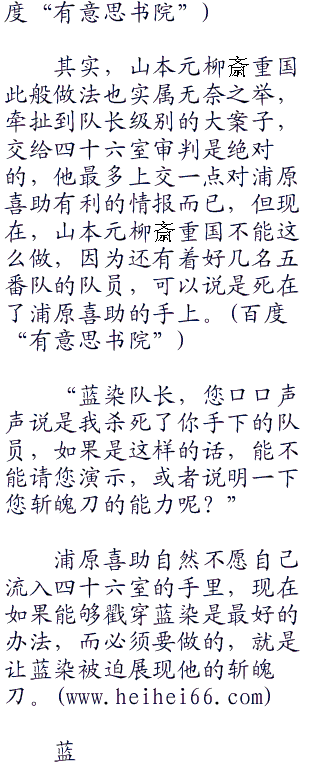 度“有意思书院”)
其实，山本元柳斎重国
此般做法也实属无奈之举，
牵扯到队长级别的大案子，
交给四十六室审判是绝对
的，他最多上交一点对浦原
喜助有利的情报而已，但现
在，山本元柳斎重国不能这
么做，因为还有着好几名五
番队的队员，可以说是死在
了浦原喜助的手上。(百度
“有意思书院”)
“蓝染队长，您口口声
声说是我杀死了你手下的队
员，如果是这样的话，能不
能请您演示，或者说明一下
您斩魄刀的能力呢？”
浦原喜助自然不愿自己
流入四十六室的手里，现在
如果能够戳穿蓝染是最好的
办法，而必须要做的，就是
让蓝染被迫展现他的斩魄
刀。(www.heihei66.com)
蓝